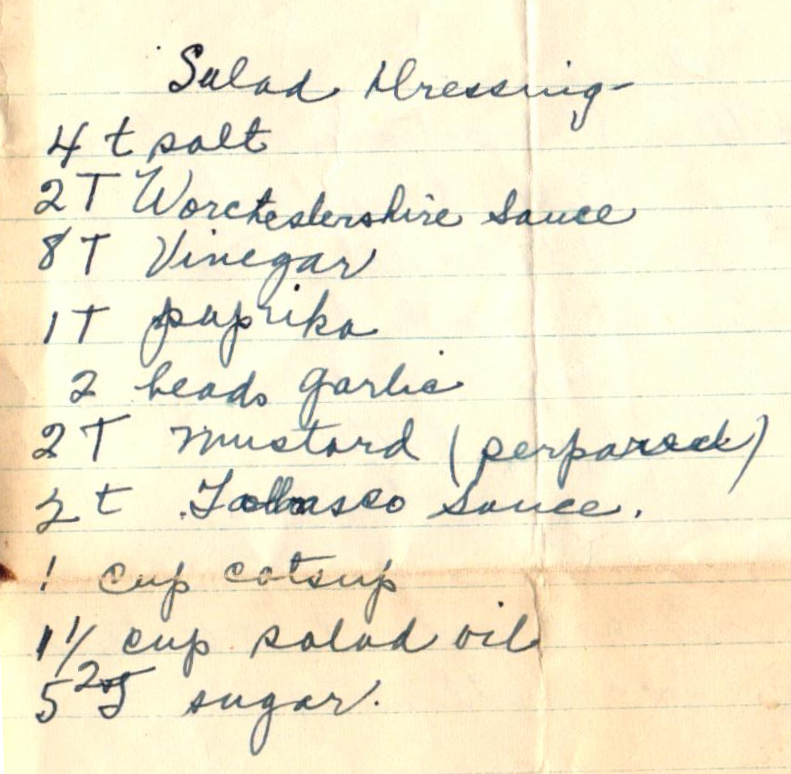 Salad Dressing
4 t salt
2 T Worchestershire Sauce
8 T Vinegar
1 T paprika
2 heads garlic
2 T mustard (perpared)
2 t Tobasco Sauce.
1 cup catsup
1 1/2 cup salad oil
5 T sugar.